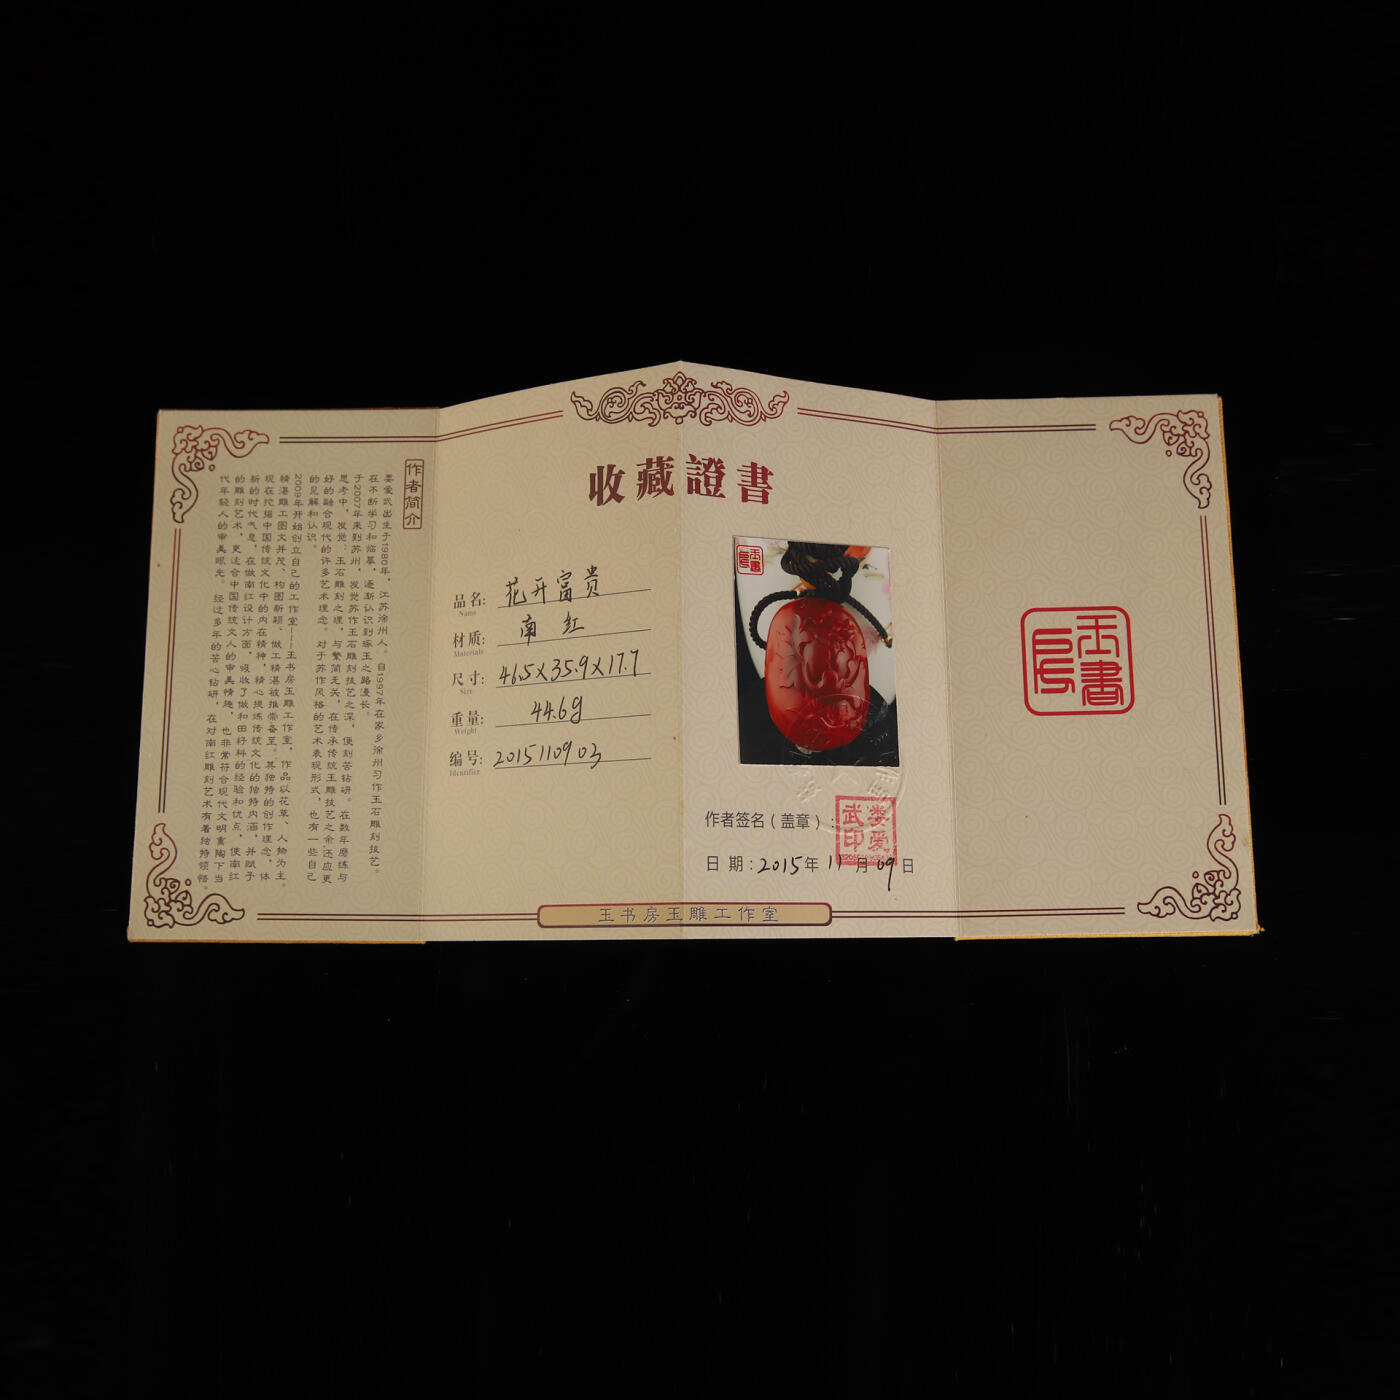 收藏證書
品名: 花开富贵
Name
材质: 南红
Materials
尺寸: 46.5X35.9X17.7
Size
重量: 44.6g
Weight
编号: 2015110903
Identifier
作者签名(盖章):
娄爱武印
日 期:2015年11月09日
玉书房玉雕工作室
作者简介
娄爱武出生于1980年,江苏徐州人。自1997年在家乡徐州习作玉石雕刻技艺。
在不断学习和临摹,逐渐认识到琢玉之路漫长。
于2007年来到苏州,发觉苏作玉石雕刻技艺之深,便刻苦钻研。在数年磨练与
思考中,发觉:玉石雕刻之理,与繁简无关,在传承传统玉雕技艺之余还应更
好的融合现代的许多艺术理念。对于苏作风格的艺术表现形式,也有一些自己
的见解和认识。
2009年开始创立自己的工作室——玉书房玉雕工作室,作品以花草、人物为主。
精湛雕工图文并茂、构图新颖、做工精湛被推崇备至。其独特的创作理念,体
现在挖掘中国传统文化中的内在精神,精心提炼传统文化的独特内涵,并赋予
新的时代气息,在做南红设计方面,吸收了做和田籽料的经验和优点,使南红
的雕刻艺术,更适合中国传统文人的审美情趣,也非常符合现代文明熏陶下当
代年轻人的审美眼光。经过多年的苦心钻研,在对南红雕刻艺术有着独特领悟。
玉書房